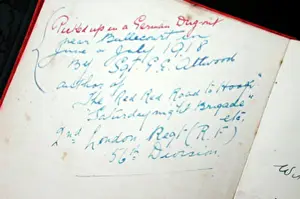 Picked up in a German Dugout
near Bullecourt in
June or July 1918
By Sgt. P.G. Attwood
author of
The "Red Red Road to Hooge"
"Saturday night Brigade"
etc.
2nd London Regt (R.F)
56th Division.